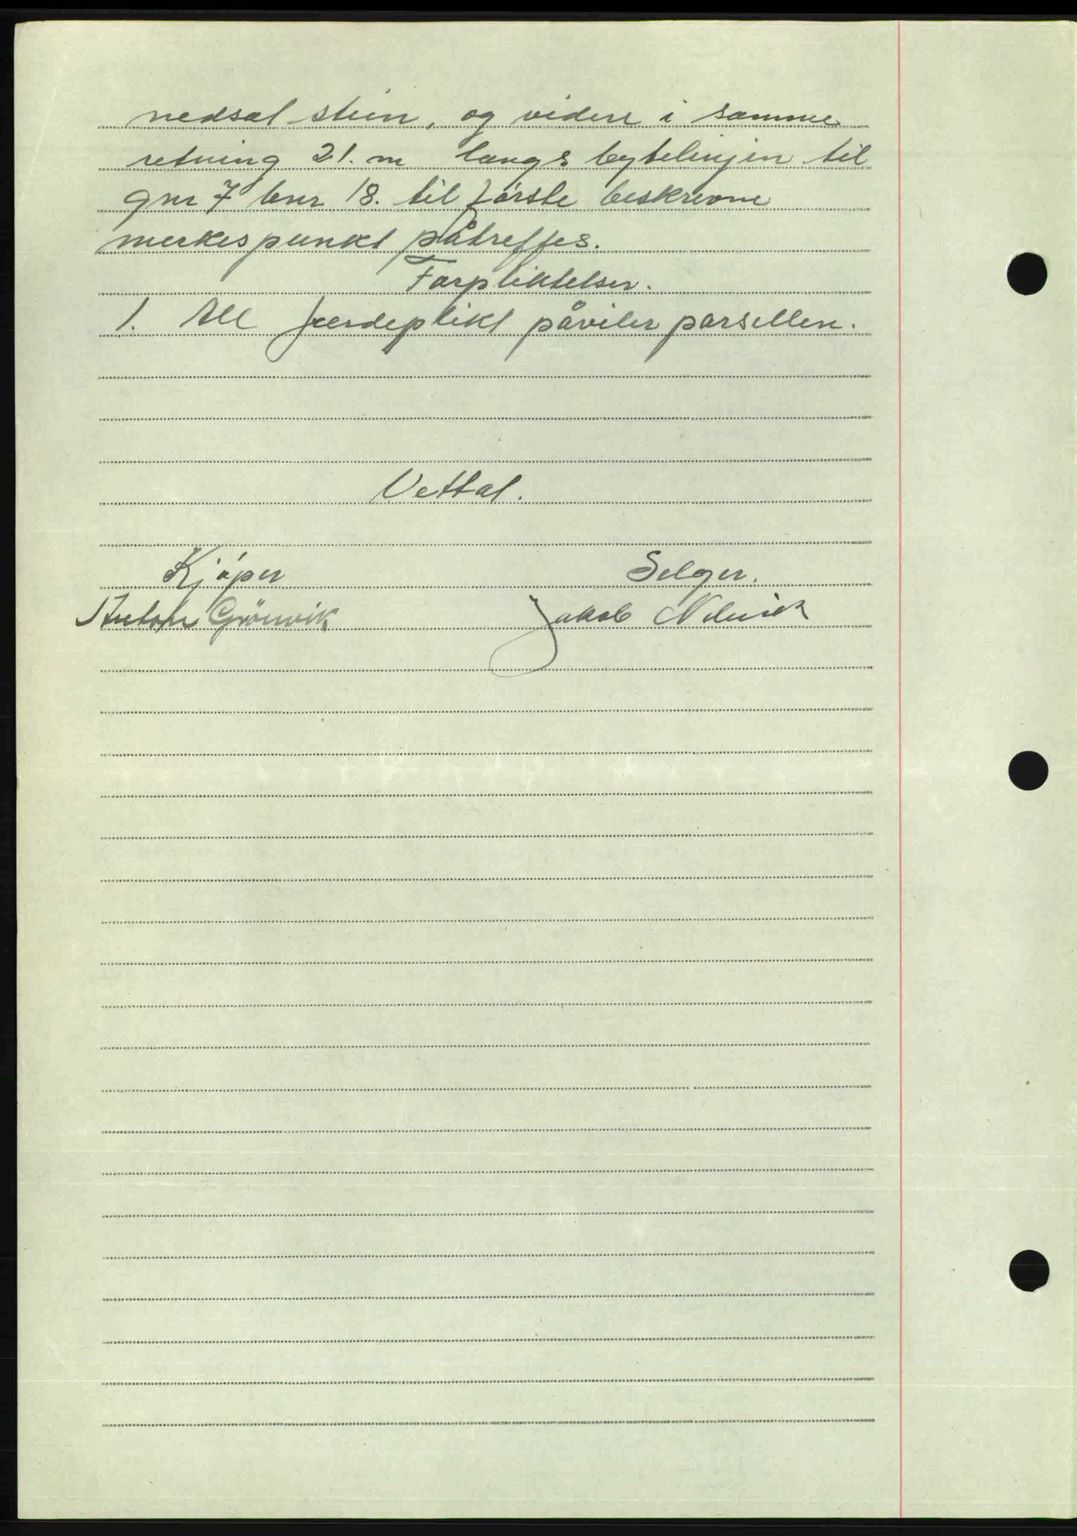 nedsat stein, og videre i samme
retning 21. m langs bytelinjen til
gnr 7 bnr 18. til første beskrevne
merkespunkt påtreffes.
Forpliktelser.
1. All gjerdeplikt påviler parsellen.
Vettal.
Kjøper Selger.
Anton Grönvik Jakob